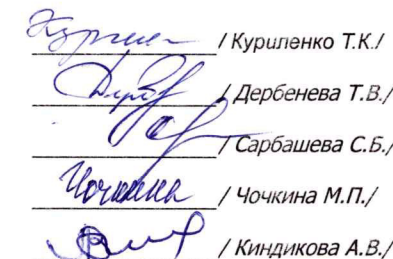 / Куриленко Т.К./
/ Дербенева Т.В./
/ Сарбашева С.Б./
Чочкина / Чочкина М.П./
/ Киндикова А.В./